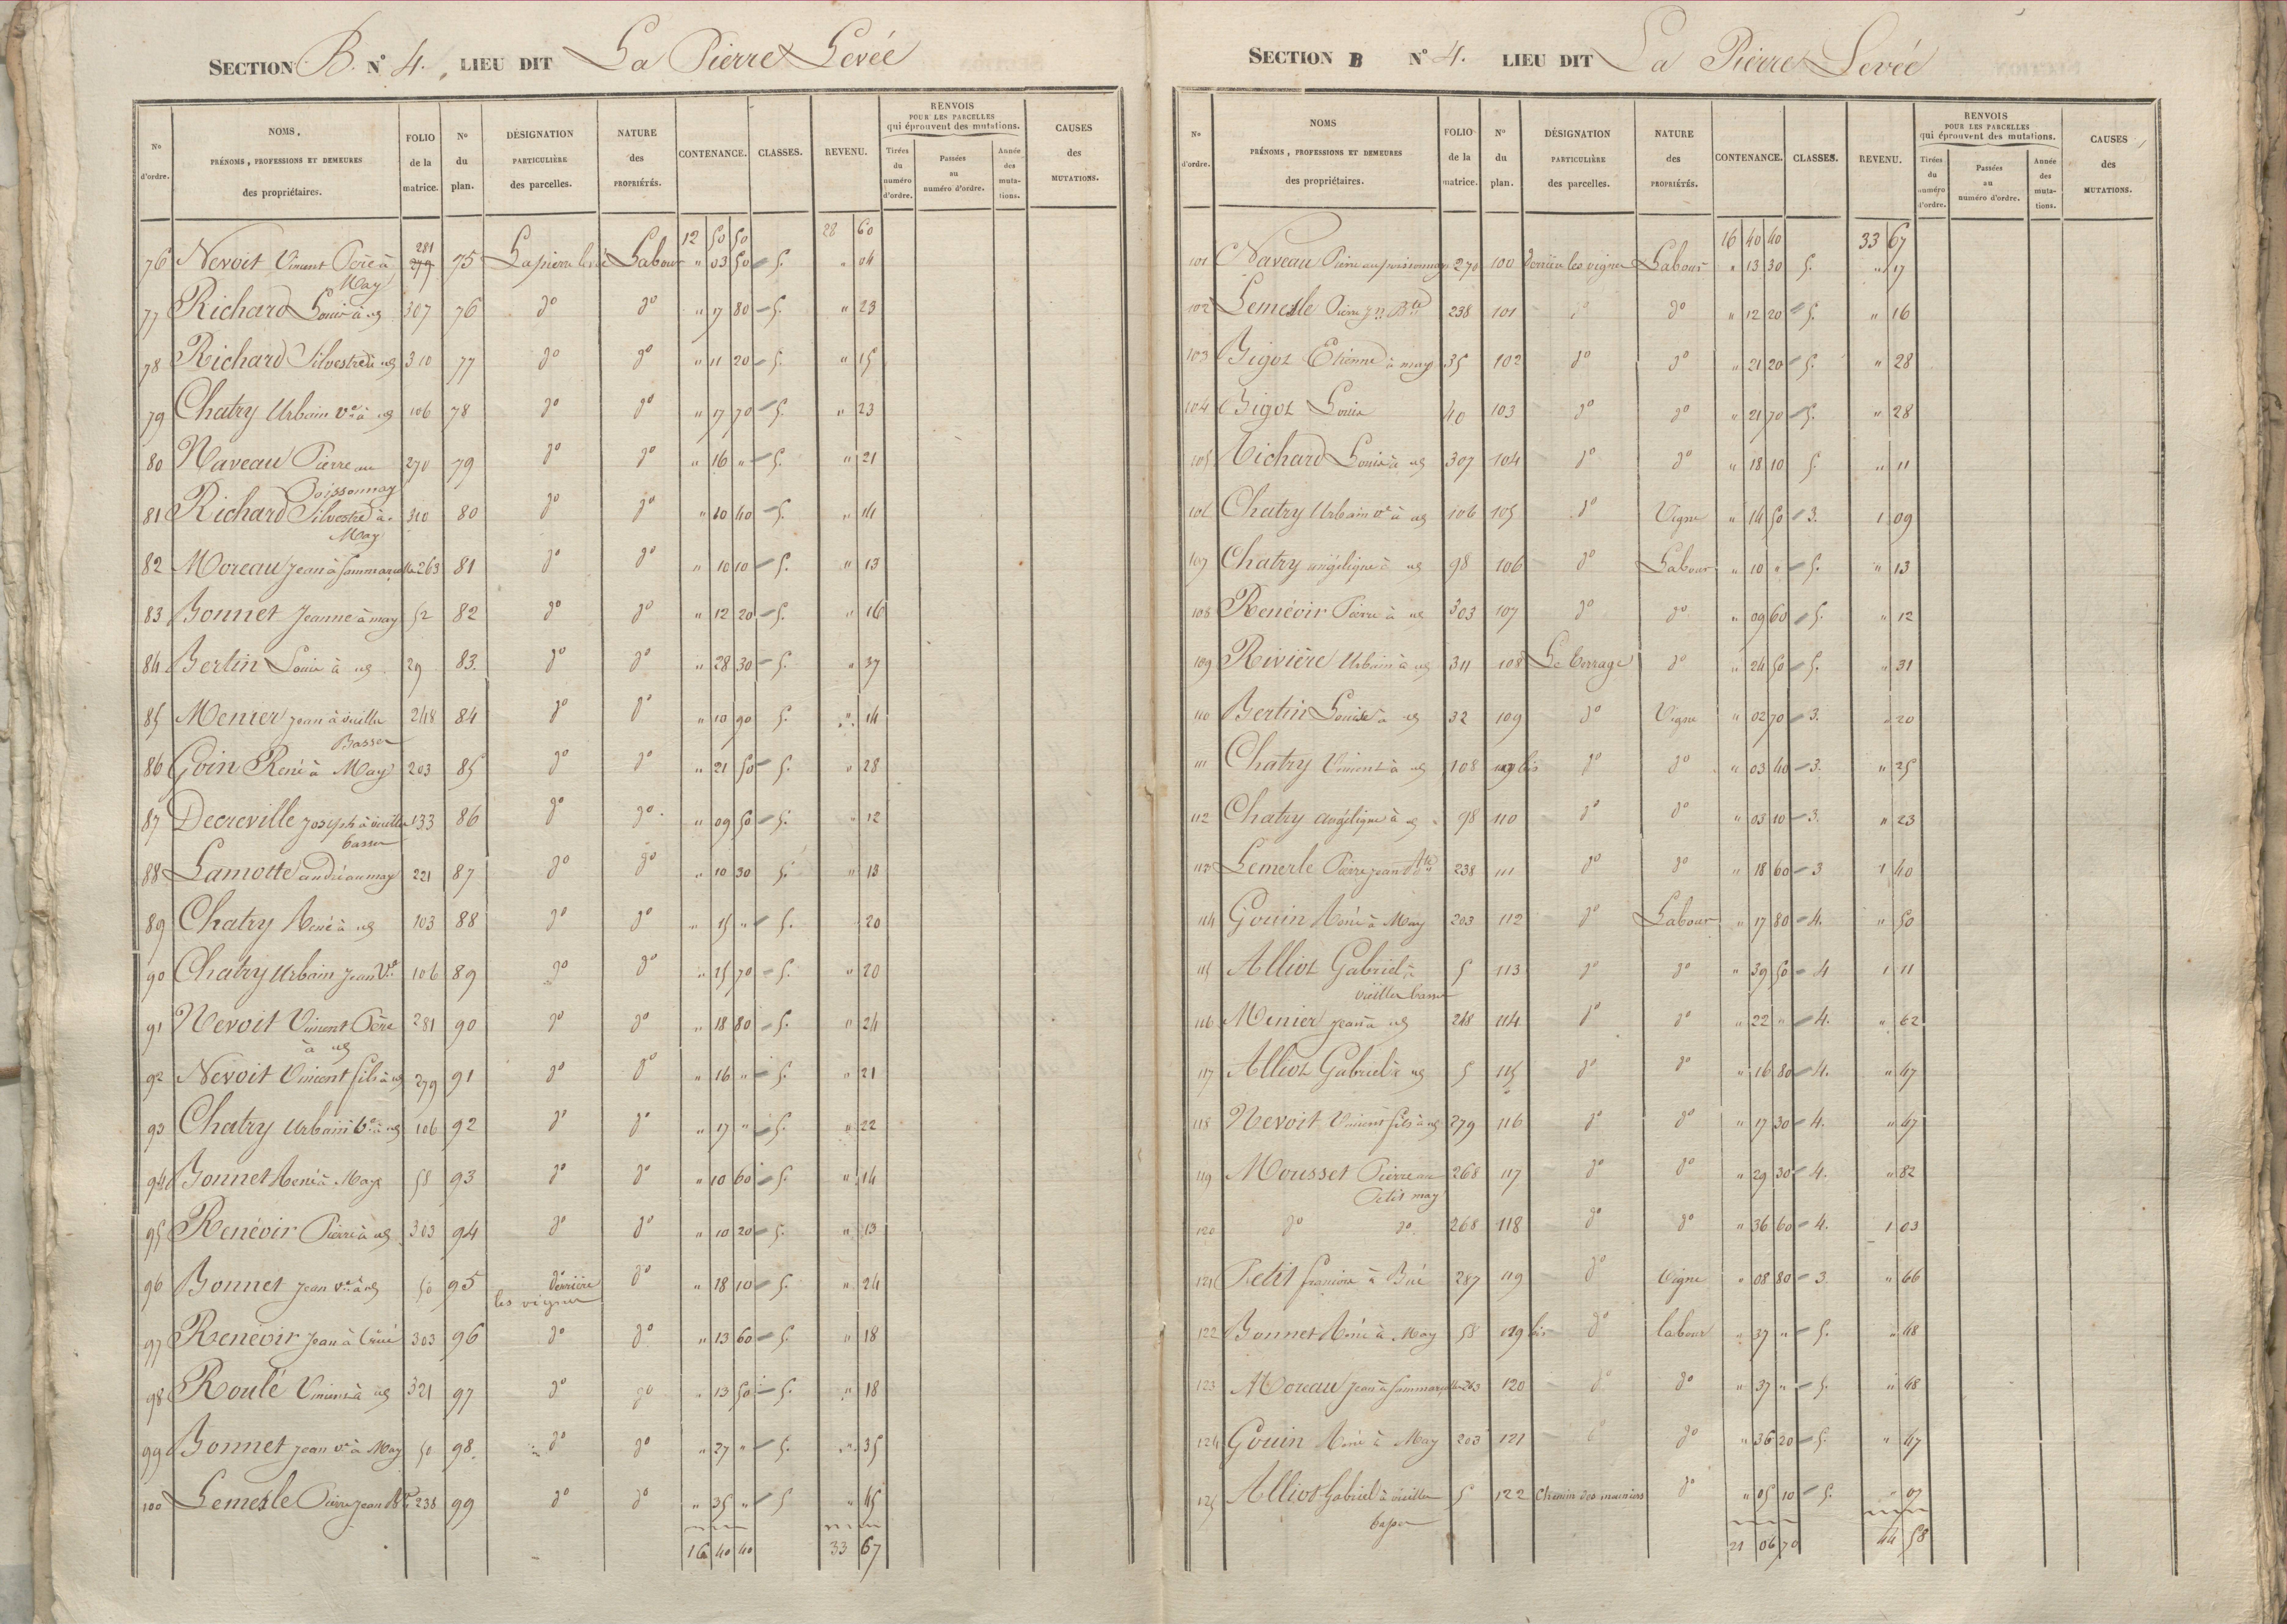 SECTION B. N° 4. LIEU DIT La Pierre Levée
N° d'ordre. NOMS, PRÉNOMS, PROFESSIONS ET DEMEURES des propriétaires. FOLIO de la matrice. N° du plan. DÉSIGNATION PARTICULIÈRE des parcelles. NATURE des PROPRIÉTÉS. CONTENANCE. CLASSES. REVENU. RENVOIS POUR LES PARCELLES qui éprouvent des mutations. Tirées du numéro d'ordre. Passées au numéro d'ordre. Année des mutations. CAUSES des MUTATIONS.
12 50 50 28 60
76 Nevoit Vincent Père à May 281 279 75 La pierre levée Labour " 03 50 5. " 04
77 Richard Louis à id 307 76 d° d° " 17 80 5. " 23
78 Richard Silvestre à id 310 77 d° d° " 11 20 5. " 15
79 Chatry Urbain Ve à id 106 78 d° d° " 17 70 5. " 23
80 Naveau Pierre au Poissonnay 270 79 d° d° " 16 " 5. " 21
81 Richard Silvestre à May 310 80 d° d° " 10 40 5. " 14
82 Moreau Jean à 263 81 d° d° " 10 10 5. " 13
83 Bonnet Jeanne à may 52 82 d° d° " 12 20 5. " 16
84 Bertin Louis à id 29 83 d° d° " 28 30 5. " 37
85 Menier Jean à vieilles Basses 248 84 d° d° " 10 90 5. " 14
86 Goin René à May 203 85 d° d° " 21 50 5. " 28
87 Decreville Joseph à vieilles basses 133 86 d° d° " 09 50 5. " 12
88 Lamotte andré au may 221 87 d° d° " 10 30 5. " 13
89 Chatry René à id 103 88 d° d° " 15 " 5. 20
90 Chatry Urbain Jean Ve 106 89 d° d° " 25 70 5. " 20
91 Nevoit Vincent Père à id 281 90 d° d° " 18 80 5. " 24
92 Nevoit Vincent fils à id 279 91 d° d° " 16 " 5. " 21
93 Chatry Urbain Ve à id 106 92 d° d° " 17 " 5. " 22
94 Bonnet René à May 58 93 d° d° " 10 60 5. " 14
95 Renévoir Pierre à id 303 94 d° d° " 10 20 5. " 13
96 Bonnet Jean Ve à id 50 95 derrière les vignes d° " 18 10 5. " 24
97 Renévoir Jean à 303 96 d° d° " 13 60 5. " 18
98 Roulé Vincent à id 321 97 d° d° " 13 50 5. " 18
99 Bonnet Jean Ve à May 50 98 d° d° " 27 " 5. " 35
100 Lemesle Pierre Jean Bte 238 99 d° d° " 35 " 5 " 45
16 40 40 33 67
SECTION B N° 4. LIEU DIT La Pierre Levée
N° d'ordre. NOMS PRÉNOMS, PROFESSIONS ET DEMEURES des propriétaires. FOLIO de la matrice. N° du plan. DÉSIGNATION PARTICULIÈRE des parcelles. NATURE des PROPRIÉTÉS. CONTENANCE. CLASSES. REVENU. RENVOIS POUR LES PARCELLES qui éprouvent des mutations. Tirées du numéro d'ordre. Passées au numéro d'ordre. Année des mutations. CAUSES des MUTATIONS.
16 40 40 33 67
101 Naveau Pierre au poissonnay 270 100 derrière les vignes Labour " 13 30 5. " 17
102 Lemesle Pierre Jn Bte 238 101 d° d° " 12 20 5. " 16
103 Bigot Etienne à may 35 102 d° d° " 21 20 5. " 28
104 Bigot Louis 40 103 d° d° " 21 70 5. " 28
105 Richard Louis à id 307 104 d° d° " 18 10 5. " 11
106 Chatry Urbain Ve à id 106 105 d° Vigne " 14 50 3. 1 09
107 Chatry angélique à id 98 106 d° Labour " 10 " 5. " 13
108 Renévoir Pierre à id 303 107 d° d° " 09 60 5. " 12
109 Rivière Urbain à id 311 108 d° " 24 50 5. " 31
110 Bertin Louise à id 32 109 d° Vigne " 02 70 3. " 20
111 Chatry Vincent à id 108 109 bis d° d° " 03 40 3. " 25
112 Chatry angélique à id 98 110 d° d° " 03 10 3. " 23
113 Lemerle Pierre jean Bte 238 111 d° d° " 18 60 3 1 40
114 Gouin René à May 203 112 d° Labour " 17 80 4. " 50
115 Alliot Gabriel à vieilles basses 5 113 d° d° " 39 50 4 1 11
116 Menier Jean à id 248 114 d° d° " 22 " 4. " 62
117 Alliot Gabriel à id 5 115 d° d° " 16 80 4. " 47
118 Nevoit Vincent fils à id 279 116 d° d° " 17 30 4. " 47
119 Mousset Pierre au Petit may 268 117 d° d° " 29 30 4. " 82
120 d° d° 268 118 d° d° " 36 60 4. 1 03
121 Petit françois à Bué 287 119 d° Vigne " 08 80 3. " 66
122 Bonnet René à May 58 119 bis d° labour " 37 " 5. " 48
123 Moreau Jean à 263 120 d° d° " 37 " 5. " 48
124 Gouin René à May 203 121 d° d° " 36 20 5. " 47
125 Alliot Gabriel à vieilles basses 5 122 Chemin des meuniers d° " 05 10 5. " 07
21 06 70 44 58